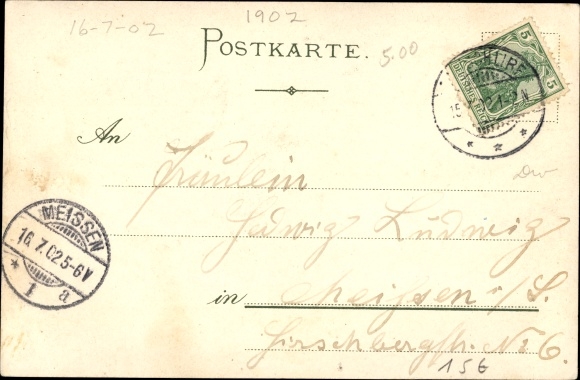 16-7-02
1902
POSTKARTE.
5.00
5 5
DEUTSCHES REICH
An
Fräulein
Hedwig Ludwig
MEISSEN
16.7.02.5-6V
* 1 a
in Meissen i/S.
Hirschbergstr. No 6.
156